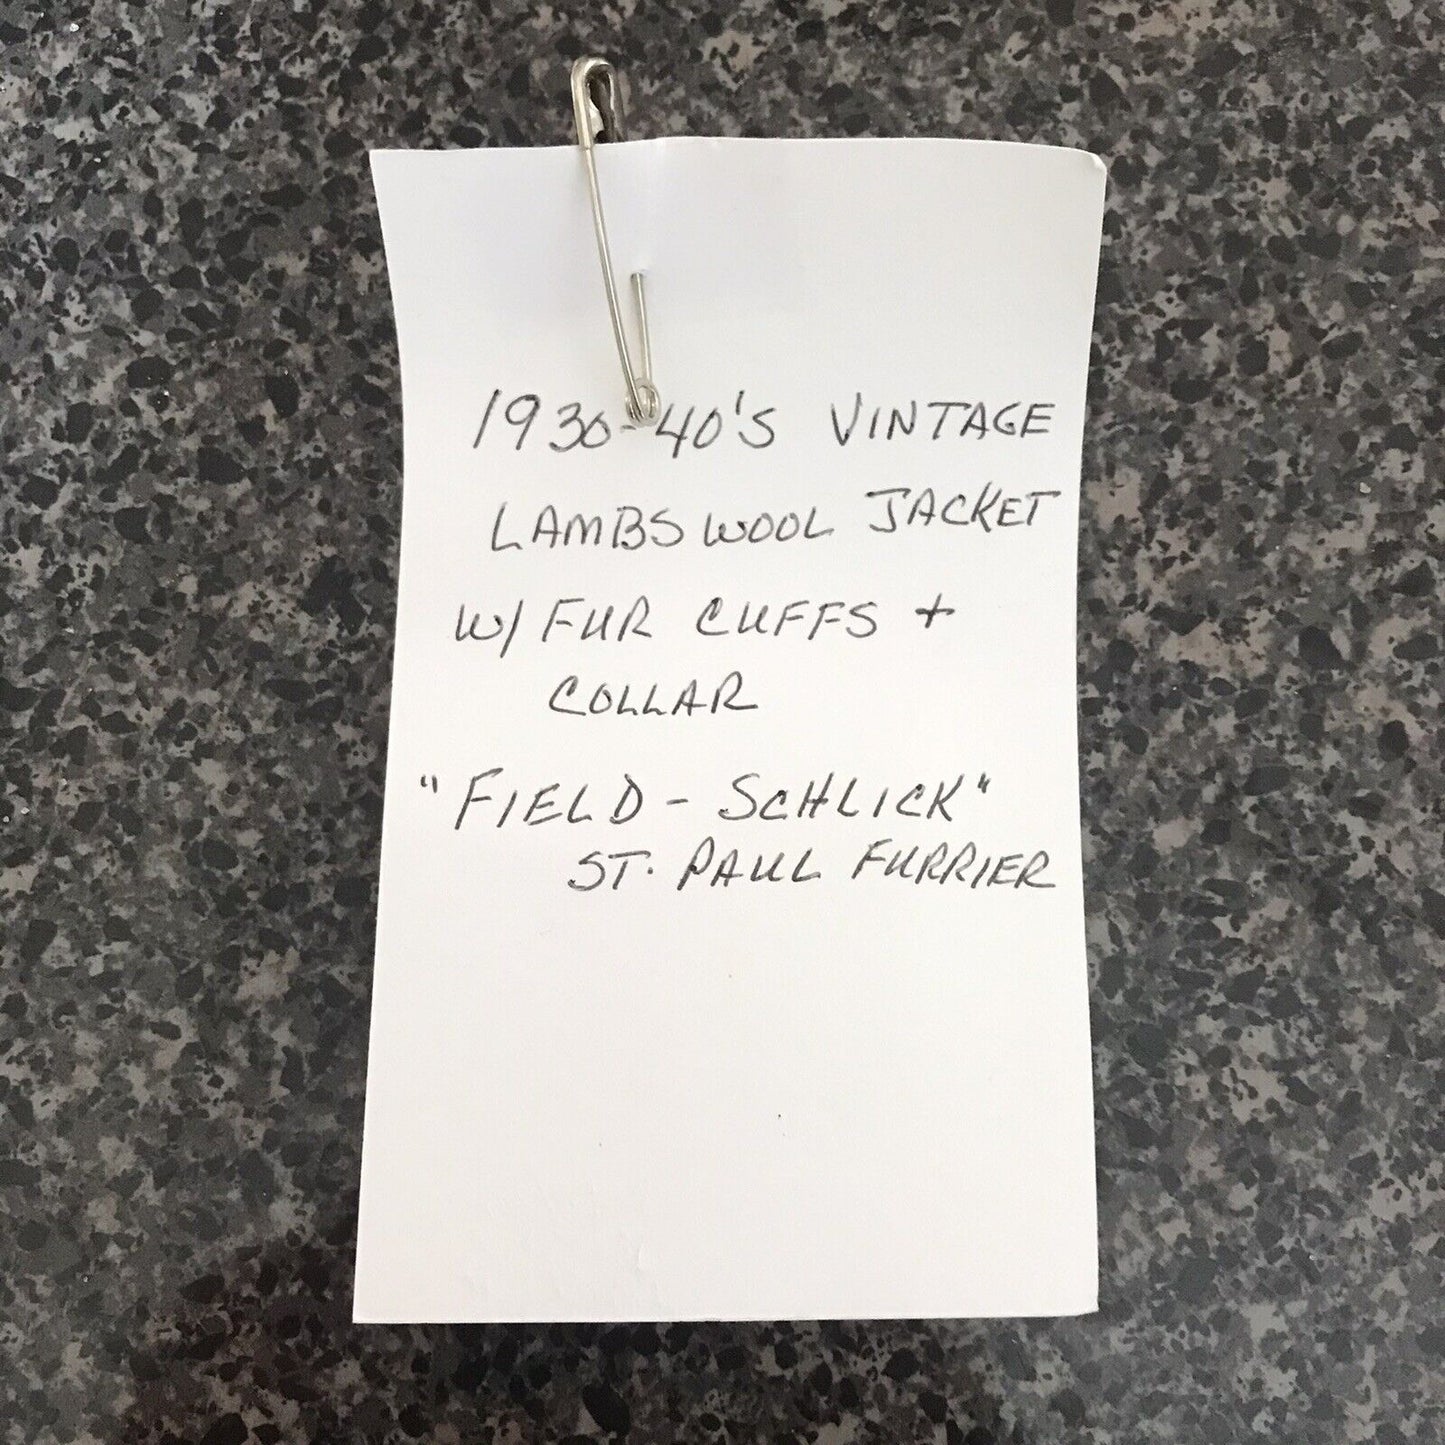 1930-40's VINTAGE
LAMBSWOOL JACKET
W/ FUR CUFFS +
COLLAR
"FIELD - SCHLICK"
ST. PAUL FURRIER